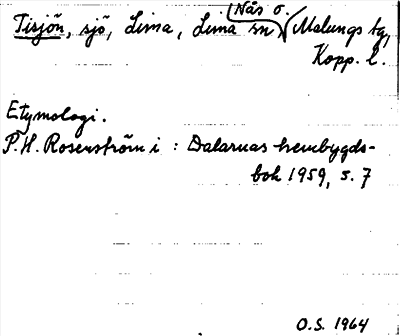 Tisjön, sjö, Lima, Lima sn, Nås o. Malungs tg,
Kopp. l.
Etymologi.
P.H. Rosenström i: Dalarnas hembygds-
bok 1959, s. 7
O.S. 1964